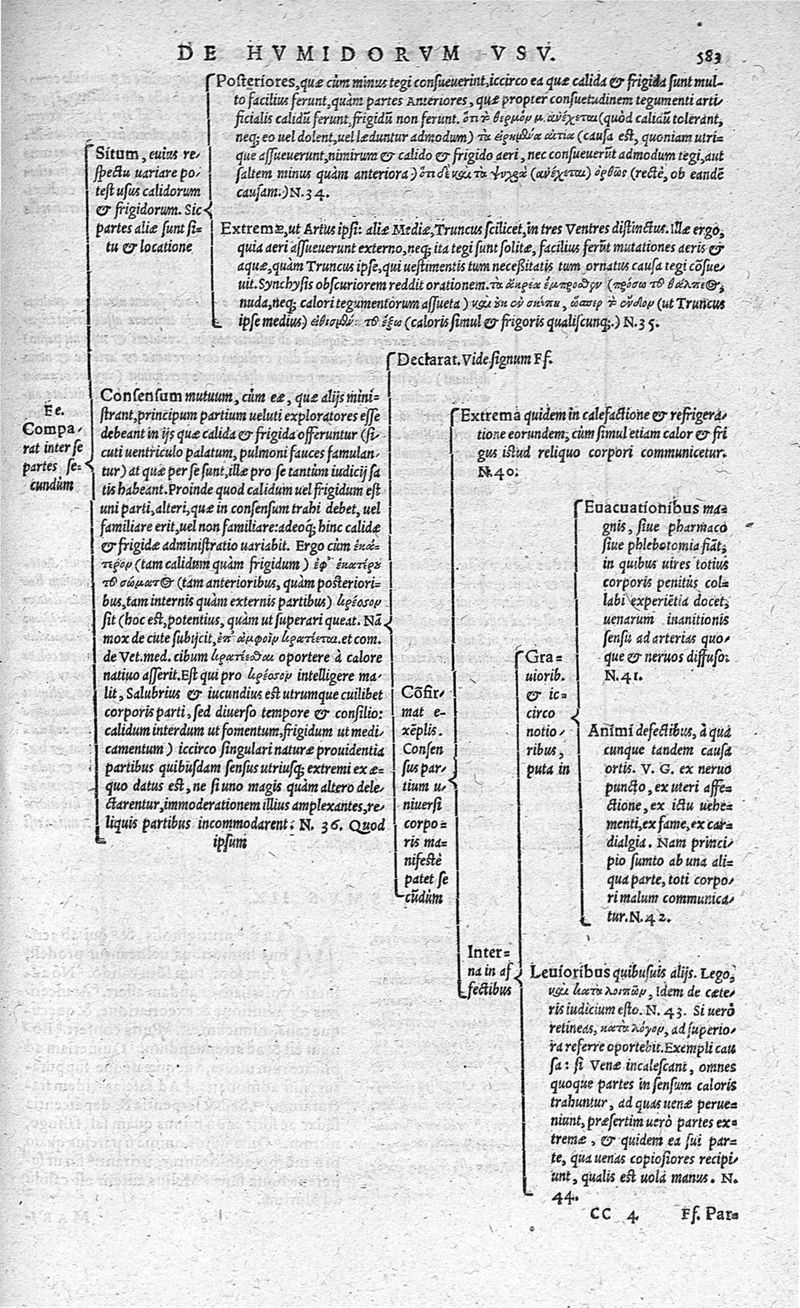 DE HVMIDORVM VSV. 583
Posteriores, quæ cùm minus tegi consueuerint, iccirco ea quæ calida & frigida sunt mul-
to facilius ferunt, quàm partes Anteriores, quæ propter consuetudinem tegumenti arti-
ficialis calidũ ferunt, frigidũ non ferunt. ὅτι τὸ θερμὸν μ. ἀνέχεται (quòd calidũ tolerant,
neq; eo uel dolent, uel læduntur admodum) τὰ εἰρημένα αἰτία (causa est, quoniam utri-
que assueuerunt, nimirum & calido & frigido aeri, nec consueuerũt admodum tegi, aut
saltem minus quàm anteriora) ὅτι δὲ καὶ τὰ ψυχρὰ (ἀνέχεται) ὀρθῶς (rectè, ob eandẽ
causam:) N. 34.
Situm, cuius re-
spectu uariare po-
test usus calidorum
& frigidorum. Sic
partes aliæ sunt si-
tu & locatione
Extremæ, ut Artus ipsi: aliæ Mediæ, Truncus scilicet, in tres Ventres distinctus. Illæ ergo,
quia aeri assueuerunt externo, neq; ita tegi sunt solitæ, facilius ferũt mutationes aeris &
aquæ, quàm Truncus ipse, qui uestimentis tum necessitatis tum ornatus causa tegi cõsue-
uit. Synchysis obscuriorem reddit orationem. τὰ ἀκρέα ἔμπροσθεν (πρόσω τοῦ θάλπεος,
nuda, neq; calori tegumentorum assueta) καὶ
(ut Truncus
ipse medius)
τοῦ ἔξω (caloris simul & frigoris qualiscunq;.) N. 35.
Ee.
Compa-
rat inter se
partes se-
cundùm
Consensum mutuum, cùm eæ, quæ alijs mini-
strant, principum partium ueluti exploratores esse
debeant in ijs quæ calida & frigida offeruntur (si-
cuti uentriculo palatum, pulmoni fauces famulan-
tur) at quæ per se sunt, illæ pro se tantùm iudicij sa
tis habeant. Proinde quod calidum uel frigidum est
uni parti, alteri, quæ in consensum trahi debet, uel
familiare erit, uel non familiare: adeoq; hinc calidæ
& frigidæ administratio uariabit. Ergo cùm ἑκά-
τερον (tam calidum quàm frigidum) ἐφ' ἑκατέρου
τοῦ σώματος (tàm anterioribus, quàm posteriori-
bus, tam internis quàm externis partibus) κρέσσον
sit (hoc est, potentius, quàm ut superari queat. Nã
mox de cute subijcit, ἐπ' ἀμφοῖν κρατέεται. et com.
de Vet. med. cibum κρατέεσθαι oportere à calore
natiuo asserit. Est qui pro κρέσσον intelligere ma-
lit, Salubrius & iucundius est utrumque cuilibet
corporis parti, sed diuerso tempore & consilio:
calidum interdum ut fomentum, frigidum ut medi-
camentum) iccirco singulari naturæ prouidentia
partibus quibusdam sensus utriusq; extremi ex æ-
quo datus est, ne si uno magis quàm altero dele-
ctarentur, immoderationem illius amplexantes, re-
liquis partibus incommodarent. N. 36. Quod
ipsum
Declarat. Vide signum Ff.
Cõfir-
mat e-
xẽplis.
Consen
sus par-
tium u-
niuersi
corpo-
ris ma-
nifestè
patet se
cũdùm
Extrema quidem in calefactione & refrigera-
tione eorundem; cùm simul etiam calor & fri
gus istud reliquo corpori communicetur.
N. 40.
Inter-
na in af
fectibus
Gra-
uiorib.
& ic-
circo
notio-
ribus,
puta in
Euacuationibus ma-
gnis, siue pharmaco
siue phlebotomia fiãt;
in quibus utres totius
corporis penitùs col-
labi experiẽtia docet;
uenarum inanitionis
sensu ad arterias quo-
que & neruos diffuso.
N. 41.
Animi defectibus, à qua
cunque tandem causa
ortis. V. G. ex neruo
puncto, ex uteri affe-
ctione, ex ictu uehe-
menti, ex fame, ex car-
dialgia. Nam princi-
pio sumto ab una ali-
qua parte, toti corpo-
ri malum communica-
tur. N. 42.
Leuioribus quibusuis alijs. Lego,
καὶ κατὰ λοιπῶν, idem de cæte-
ris iudicium esto. N. 43. Si uerò
retineas, κατὰ λόγον, ad superio-
ra referre oportebit. Exempli cau
sa: si Venæ incalescant, omnes
quoque partes in sensum caloris
trahuntur, ad quas uenæ perue-
niunt, præsertim uerò partes ex-
tremæ, & quidem ea sui par-
te, qua uenas copiosiores recipi-
unt, qualis est uola manus. N.
44.
CC 4 Ff. Par-